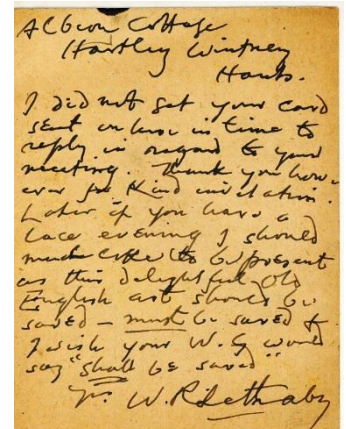 Albion Cottage
Hartley Wintney
Hants.
I did not get your card
sent on here in time to
reply in regard to your
meeting. Thank you how-
ever for kind invitation.
Later if you have a
lace evening I should
much like to be present
as this delightful old
English art should be
saved – must be saved &
I wish your W.G would
say "shall be saved"
Yrs W.R Lethaby